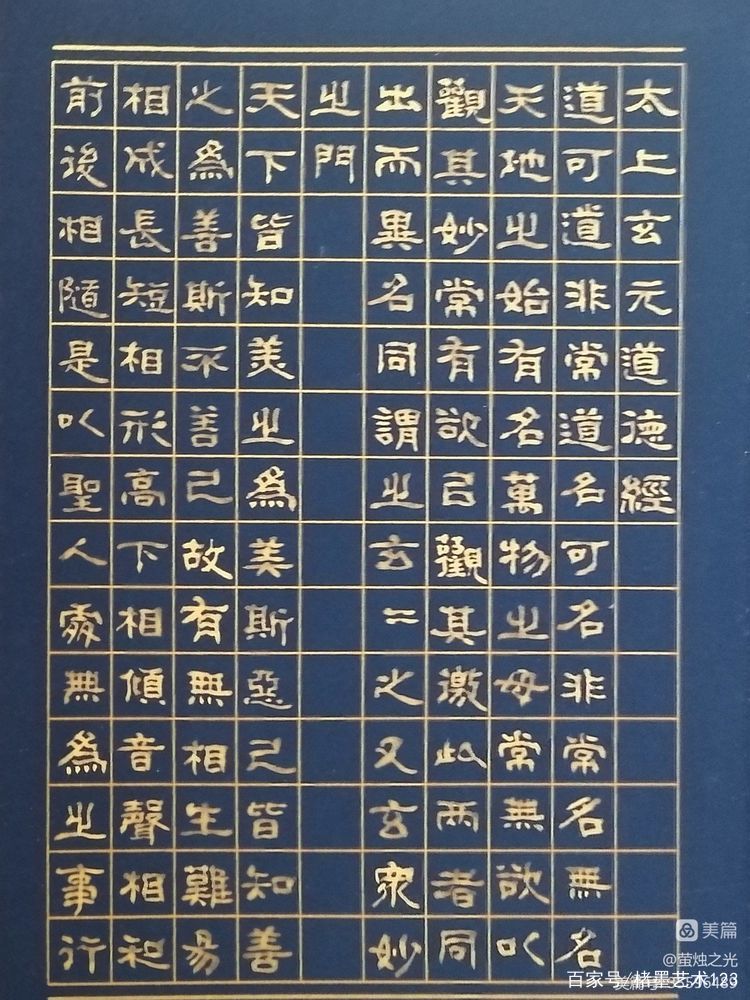 太上玄元道德經
道可道非常道名可名非常名無名
天地之始有名萬物之母常無欲以
觀其妙常有欲㠯觀其徼此兩者同
出而異名同謂之玄〻之又玄眾妙
之門
天下皆知美之為美斯惡已皆知善
之為善斯不善已故有無相生難易
相成長短相形高下相傾音聲相和
前後相隨是以聖人處無為之事行
美篇
@萤烛之光
百家号/楮墨艺术123